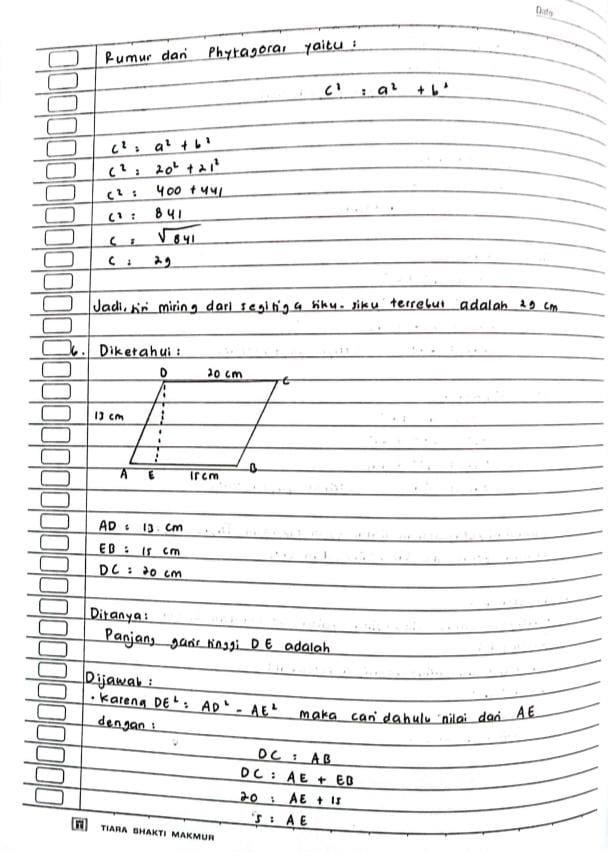 Date
Rumus dari Phytagoras yaitu :
c² : a² + b²
c² : a² + b²
c² : 20² + 21²
c² : 400 + 441
c² : 841
c : √841
c : 29
Jadi, sisi miring dari segitiga siku-siku tersebut adalah 29 cm
6. Diketahui :
D 20 cm C
13 cm
A E 15 cm B
AD : 13 cm
EB : 15 cm
DC : 20 cm
Ditanya :
Panjang garis tinggi DE adalah
Dijawab :
• Karena DE² : AD² - AE² maka cari dahulu nilai dari AE
dengan :
DC : AB
DC : AE + EB
20 : AE + 15
5 : AE
TIARA BHAKTI MAKMUR